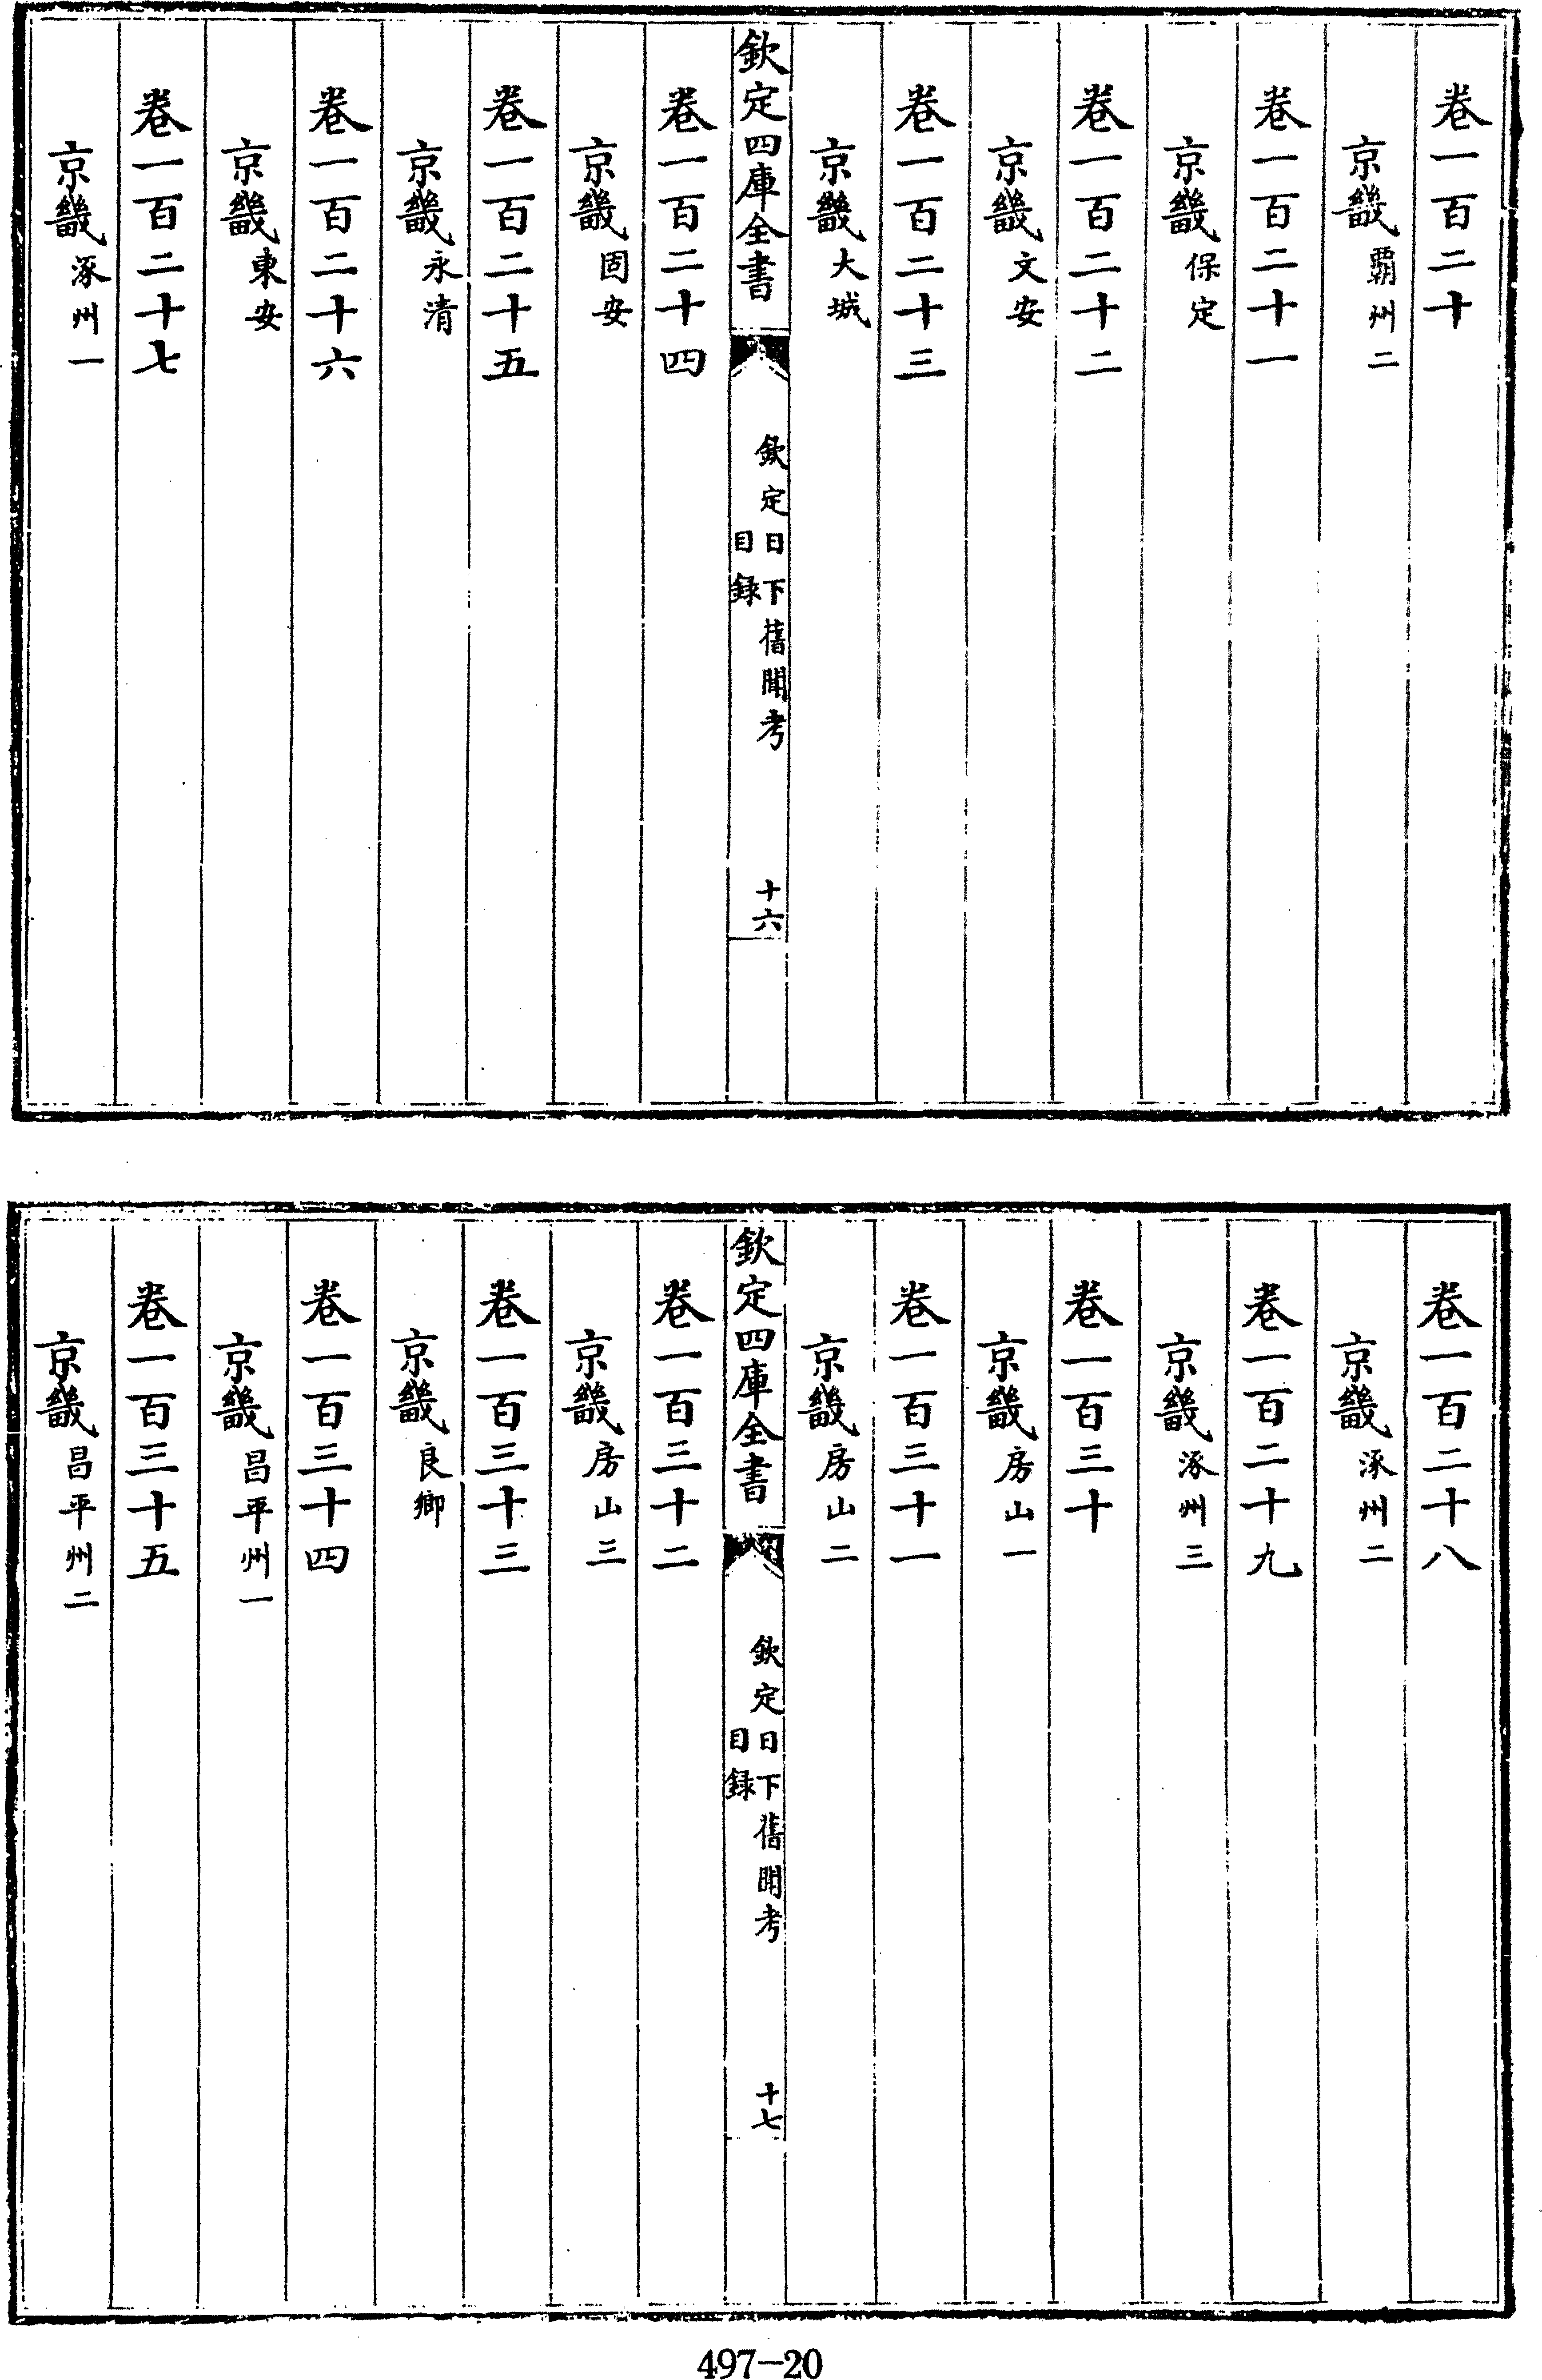 卷一百二十
京畿霸州二
卷一百二十一
京畿保定
卷一百二十二
京畿文安
卷一百二十三
京畿大城
欽定四庫全書
欽定日下舊聞考
目録
十六
卷一百二十四
京畿固安
卷一百二十五
京畿永清
卷一百二十六
京畿東安
卷一百二十七
京畿涿州一
卷一百二十八
京畿涿州二
卷一百二十九
京畿涿州三
卷一百三十
京畿房山一
卷一百三十一
京畿房山二
欽定四庫全書
欽定日下舊聞考
目録
十七
卷一百三十二
京畿房山三
卷一百三十三
京畿良鄉
卷一百三十四
京畿昌平州一
卷一百三十五
京畿昌平州二
497-20